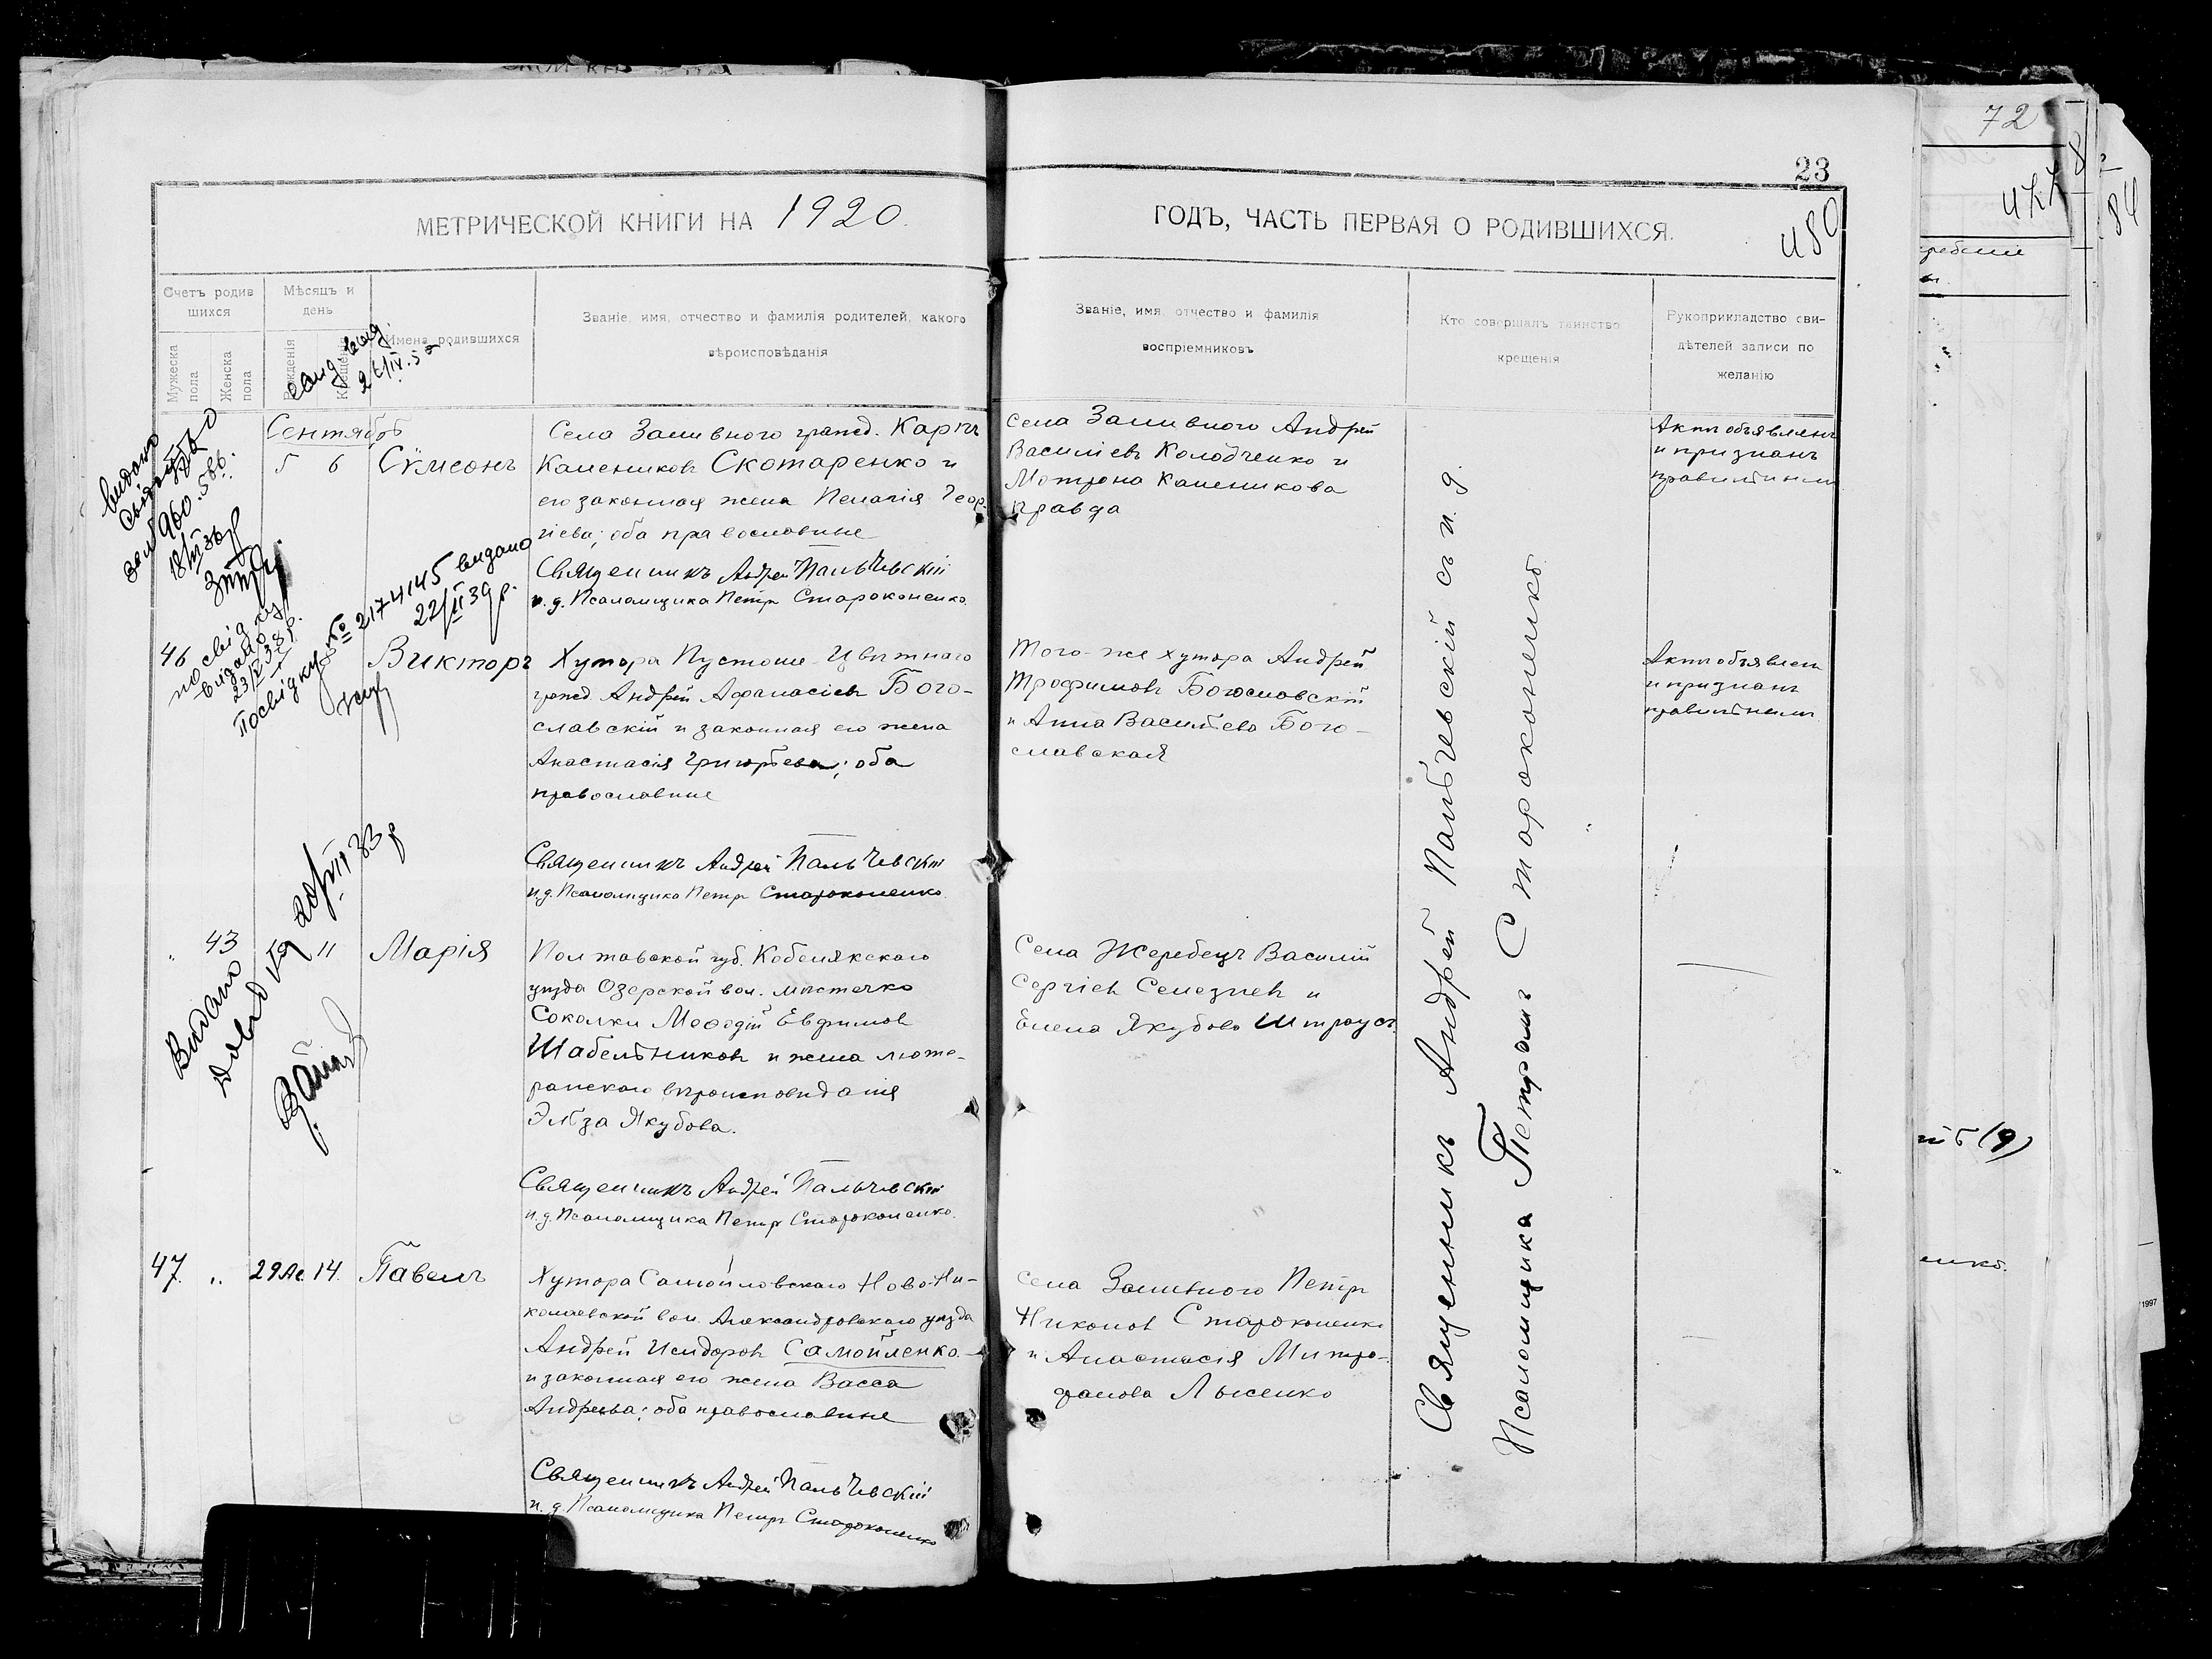 72
23
МЕТРИЧЕСКОЙ КНИГИ НА 1920.
ГОДЪ, ЧАСТЬ ПЕРВАЯ О РОДИВШИХСЯ.
480
Счетъ родив
шихся
Мужеска пола
Женска пола
Мѣсяцъ и
день
Рожденія
Крещенія
Имена родившихся
Званіе, имя, отчество и фамилія родителей, какого
вѣроисповѣданія
Званіе, имя, отчество и фамилія
воспріемниковъ
Кто совершалъ таинство
крещенія
Рукоприкладство сви-
дѣтелей записи по
желанію
Сентябрь
5 6 Сѵмеонъ
Села Заливного гражд. Карпъ
Калениковъ Скотаренко и
его законная жена Пелагія Геор-
гіева; оба православные
Священникъ Андрей Пальчевскій
и.д. Псаломщика Петръ Староконенко
Села Заливного Андрей
Василіевъ Колодченко и
Мотрона Каленикова
Правда
Актъ объявленъ
и признанъ
правильнымъ
видано
960.586.
посвід
видано
23/V 38 р.
Посвідку № 2174145 видано
22/II 39 р.
46 Викторъ
Хутора Пустоше-Цвѣтного
гражд Андрей Афанасіевъ Бого-
славскій и законная его жена
Анастасія Григорьева; оба
православные
Священникъ Андрей Пальчевскій
и.д. Псаломщика Петръ Староконенко.
Того-же хутора Андрей
Трофимовъ Богословскій
и Анна Васильева Бого-
славская
Актъ объявленъ
и признанъ
правильнымъ
43 11 Марія
Полтавской губ. Кобелякскаго
уѣзда Озерской вол. мѣстечко
Соколки Меѳодій Евфимовъ
Шабельниковъ и жена люте-
ранскаго вѣроисповѣданія
Эльза Якубова.
Священникъ Андрей Пальчевскій
и.д. Псаломщика Петръ Староконенко.
Села Жеребецъ Василій
Сергіевъ Селезневъ и
Елена Якубова Штраусъ
Видано
47. 29 Ав. 14. Павелъ
Хутора Самойловскаго Ново-Ни-
колаевской вол. Александровскаго уѣзда
Андрей Исидоровъ Самойленко
и законная его жена Васса
Андреева; оба православные
Священникъ Андрей Пальчевскій
и. д. Псаломщика Петръ Староконенко
Села Заливного Петръ
Никоновъ Староконенко
и Анастасія Митро-
фанова Лысенко
Священникъ Андрей Пальчевскій съ и. д.
Псаломщика Петромъ Староконенко
1997